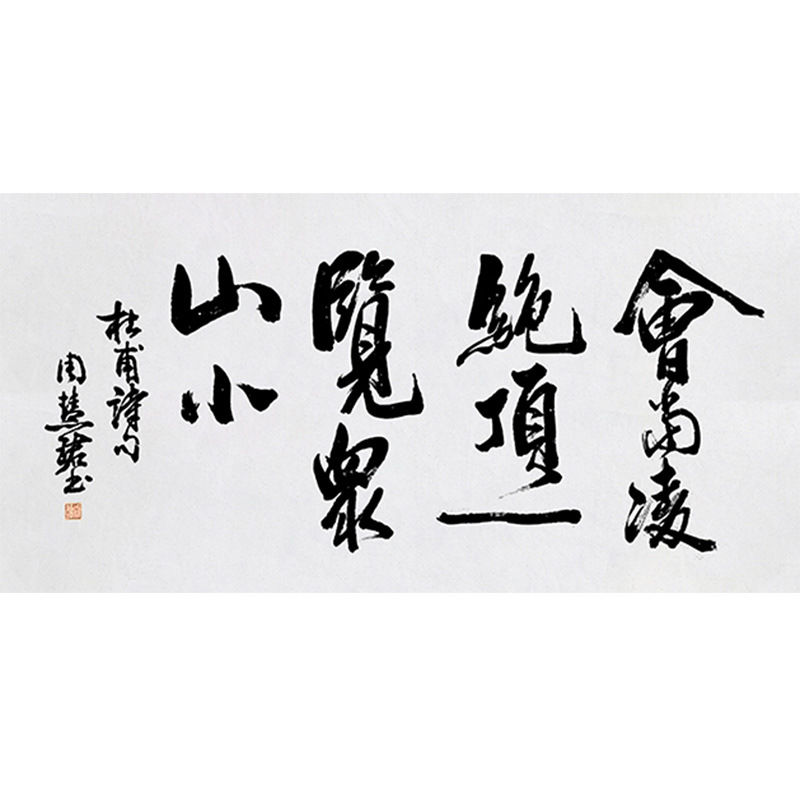 會當凌
絶頂一
覽衆
山小
杜甫詩句
周慧珺書